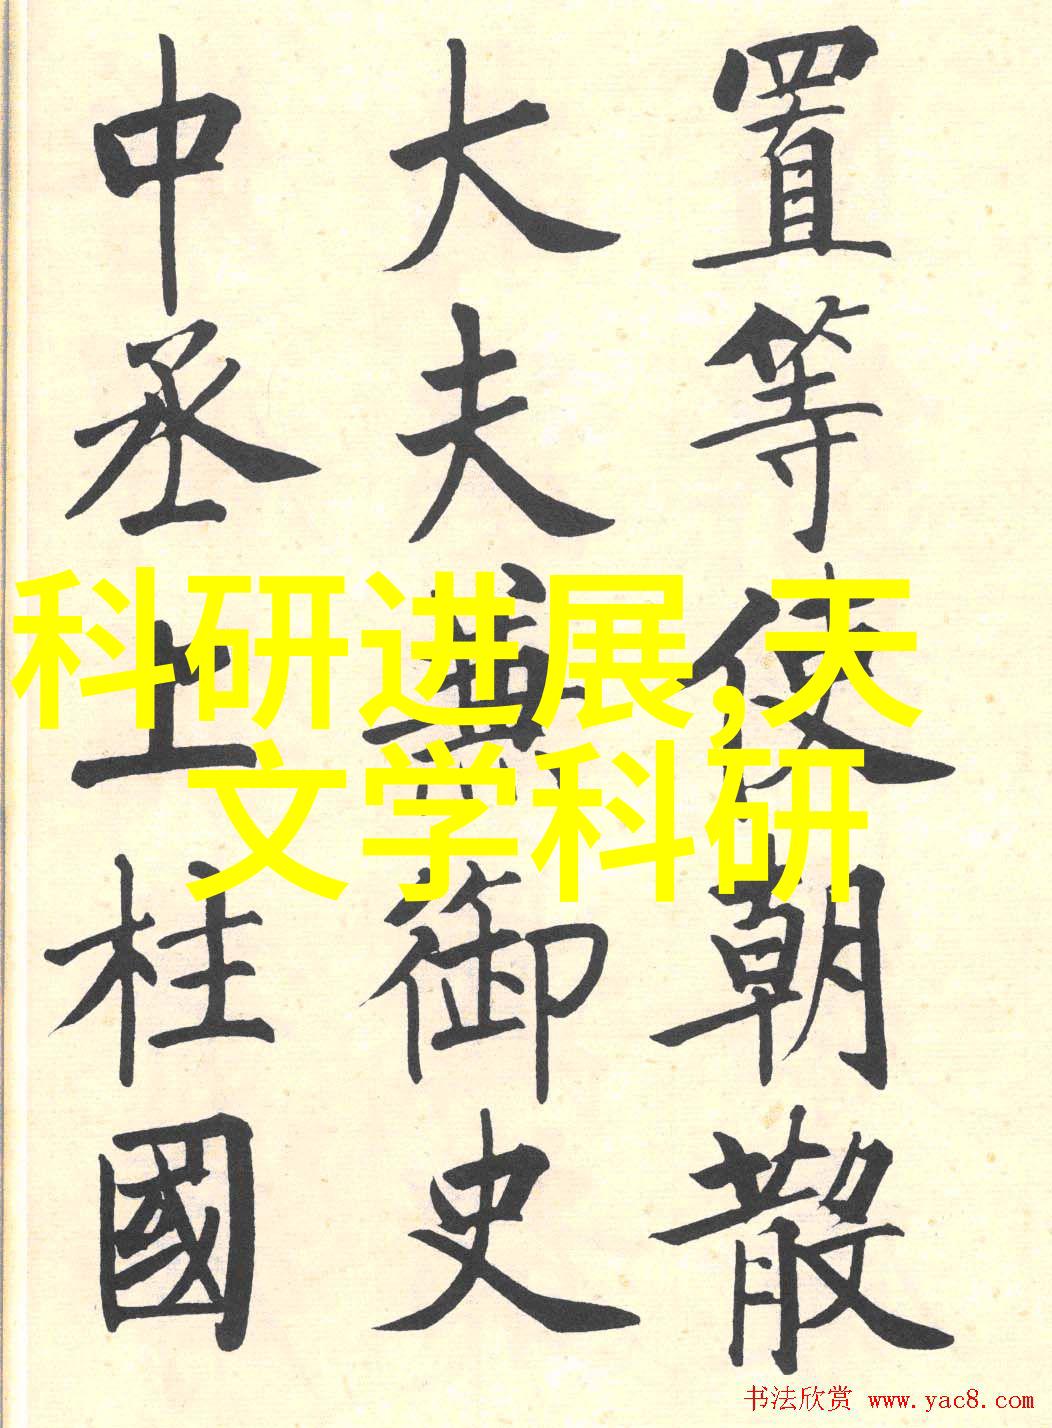 置等使朝散
大夫兼御史
中丞上柱國
科研进展,天
文学科研
书法欣赏 www.yac8.com